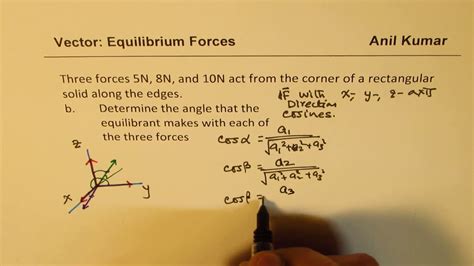 Vector: Equilibrium Forces
Anil Kumar
Three forces 5N, 8N, and 10N act from the corner of a rectangular
solid along the edges.
b. Determine the angle that the
equilibrant makes with each of
the three forces
with x-, y-, z-axis
Direction
cosines.
cosα = a₁
√a₁²+a₂²+a₃²
cosβ = a₂
√a₁²+a₂²+a₃²
cosβ = a₃
z
x
y